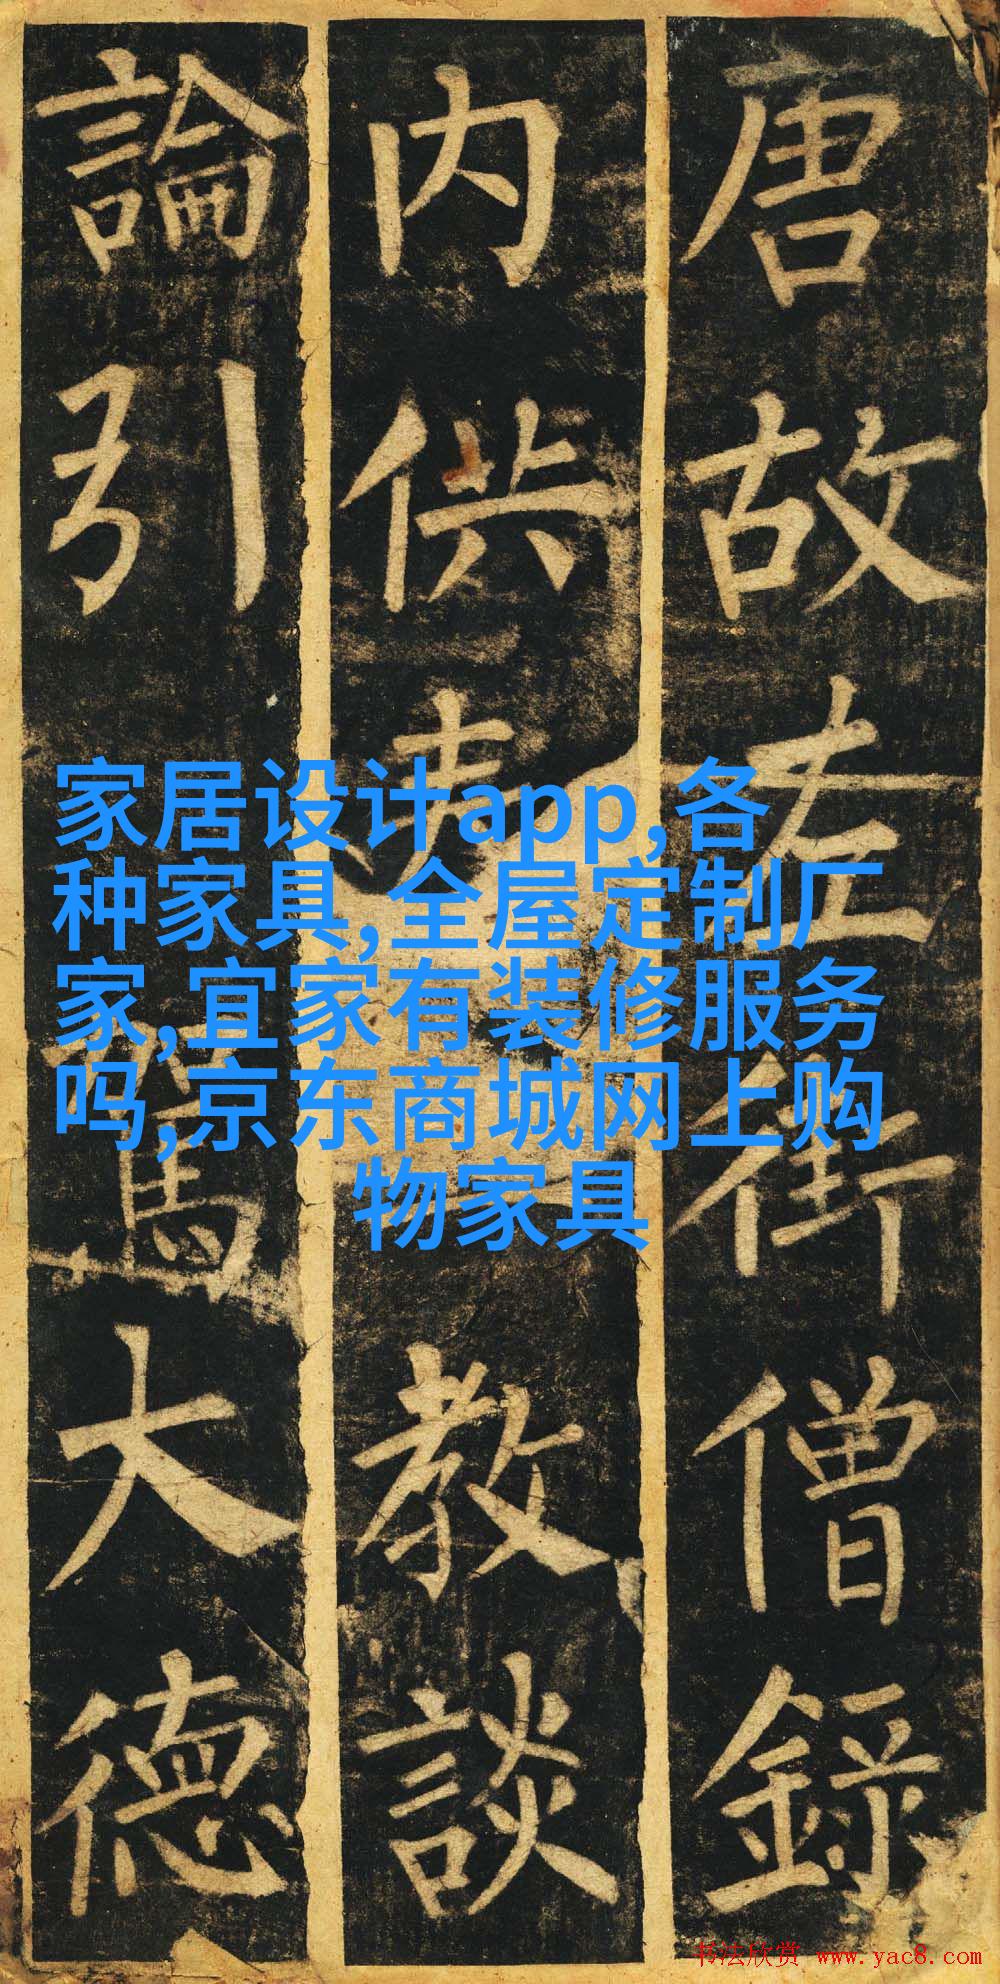 唐故左街僧錄
内供奉教談
論引駕大德
家居设计app,各
种家具,全屋定制厂
家,宜家有装修服务
吗,京东商城网上购
物家具
书法欣赏 www.yac8.com